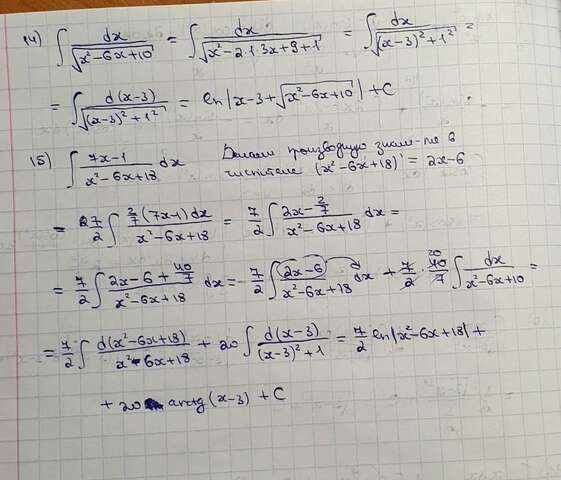 14) ∫ dx/√(x²-6x+10) = ∫ dx/√(x²-2·1·3x+9+1) = ∫ dx/√((x-3)²+1²) =
= ∫ d(x-3)/√((x-3)²+1²) = ln|x-3+√(x²-6x+10)|+C
15) ∫ (7x-1)/(x²-6x+18) dx Делаем производную знам-ля в
числителе (x²-6x+18)' = 2x-6
= 7/2 ∫ (2/7 (7x-1)dx)/(x²-6x+18) = 7/2 ∫ (2x-2/7)/(x²-6x+18) dx =
= 7/2 ∫ (2x-6+40/7)/(x²-6x+18) dx = 7/2 ∫ (2x-6)/(x²-6x+18) dx + 7/2 · 40/7 20 ∫ dx/(x²-6x+10) =
= 7/2 ∫ d(x²-6x+18)/(x²-6x+18) + 20 ∫ d(x-3)/((x-3)²+1) = 7/2 ln|x²-6x+18| +
+ 20 arctg (x-3) + C